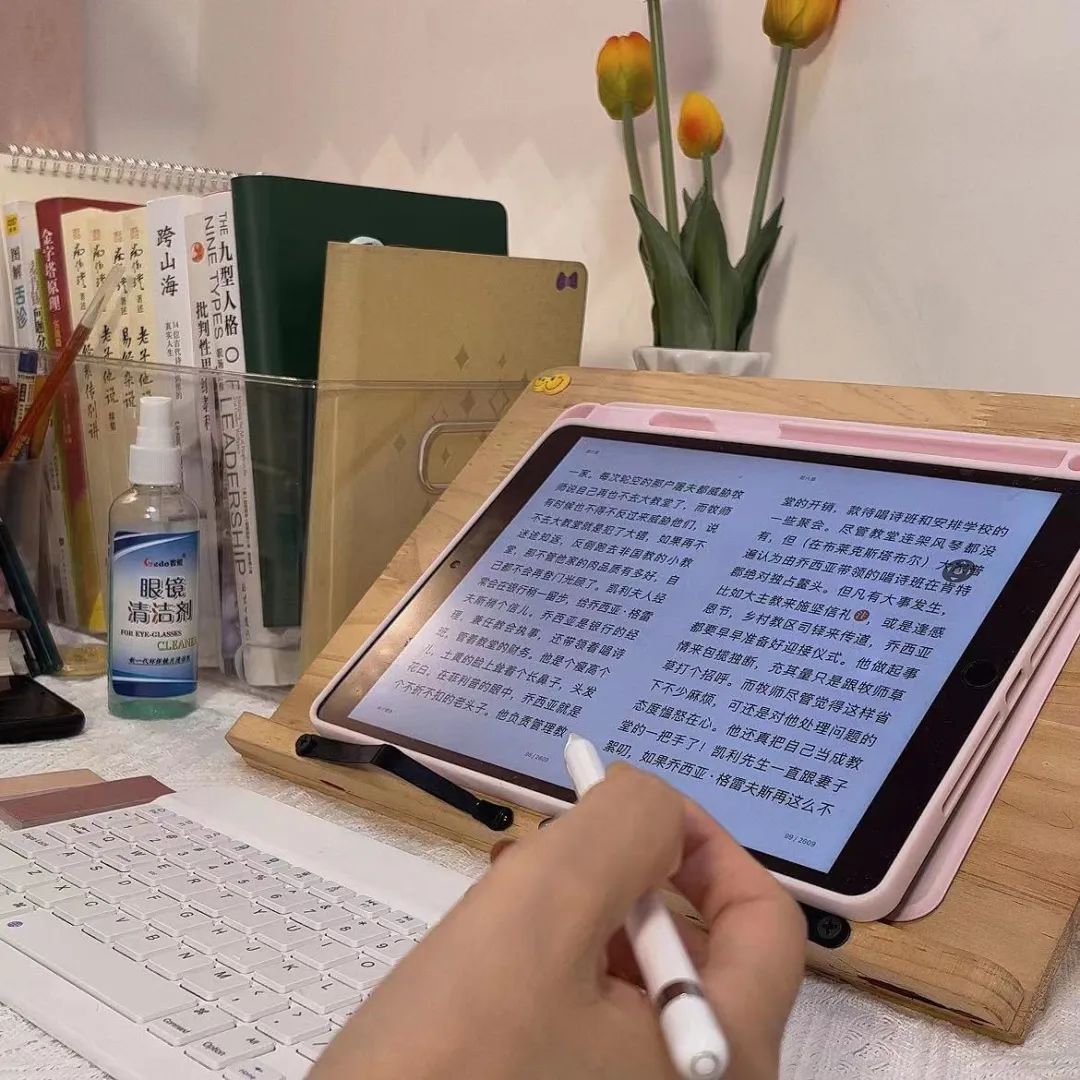 图解舌诊
金字塔原理
老子他说
易经杂说
老子他说
跨山海
THE NINE TYPES OF LEADERSHIP
九型人格
眼镜
清洁剂
FOR EYE-GLASSES
CLEANER
一家。每次轮空的那户屠夫都威胁牧
师说自己再也不去大教堂了，而牧师
有时候也不得不反过来威胁他们，说
不去大教堂就是犯了大错，如果再不
迷途知返，反倒跑去非国教的小教
堂，那不管他家的肉品质有多好，自
己都不会再登门光顾了。凯利夫人经
常会在银行稍一留步，给乔西亚·格雷
夫斯稍个信儿，乔西亚是银行的经
理，兼任教会执事，还带领着唱诗
班，管着教堂的财务。他是个瘦高个
儿，土黄的脸上耸着个长鼻子，头发
花白，在菲利普的眼中，乔西亚就是
个不折不扣的老头子。他负责管理教
95/2609
堂的开销，款待唱诗班和安排学校的
一些聚会。尽管教堂连架风琴都没
有，但（在布莱克斯塔布尔）大家普
遍认为由乔西亚带领的唱诗班在肯特
郡绝对独占鳌头。但凡有大事发生，
比如大主教来施坚信礼，或是逢感
恩节，乡村教区司铎来传道，乔西亚
都要早早准备好迎接仪式。他做起事
情来包揽独断，充其量只是跟牧师草
草打个招呼。而牧师尽管觉得这样省
下不少麻烦，可还是对他处理问题的
态度愠怒在心。他还真把自己当成教
堂的一把手了！凯利先生一直跟妻子
絮叨，如果乔西亚·格雷夫斯再这么不
99/2609
Command
Option